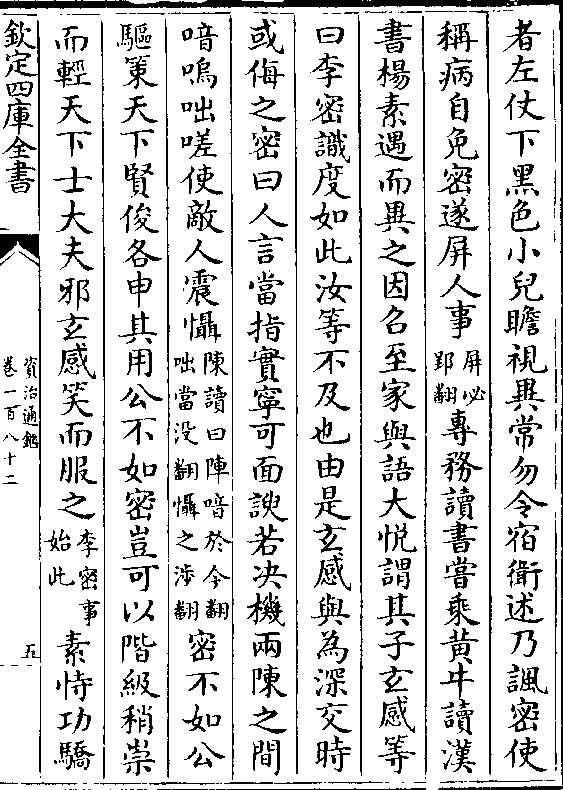 者左仗下黑色小兒瞻視異常勿令宿衛述乃諷密使
稱病自免密遂屏人事屏必郢翻專務讀書嘗乘黄牛讀漢
書楊素遇而異之因召至家與語大悦謂其子玄感等
曰李密識度如此汝等不及也由是玄感與為深交時
或侮之密曰人言當指實寧可面諛若决機兩陳之間
喑嗚咄嗟使敵人震懾陳讀曰陣喑於今翻咄當没翻懾之涉翻密不如公
驅策天下賢俊各申其用公不如密豈可以階級稍崇
而輕天下士大夫邪玄感笑而服之李密事始此素恃功驕
欽定四庫全書
資治通鑑
卷一百八十二
五